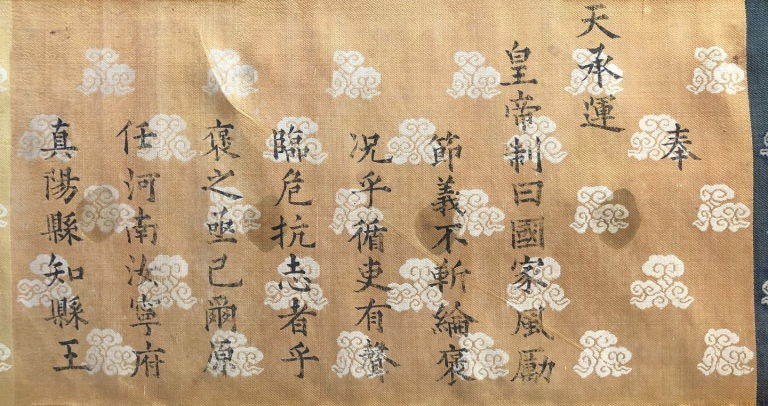 奉
天承運
皇帝制曰國家風勵
節義不靳綸褒
況乎循吏有聲
臨危抗志者乎
褒之亟已爾原
任河南汝寧府
真陽縣知縣王